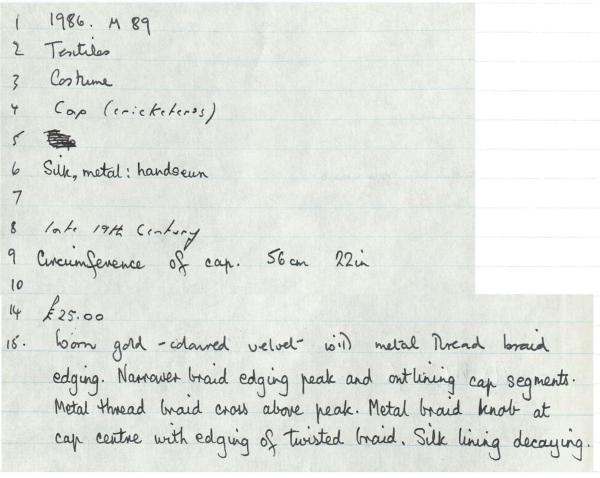 1 1986. M 89
2 Textiles
3 Costume
4 Cap (cricketers)
5
6 Silk, metal: handsewn
7
8 late 19th Century
9 Circumference of cap. 56cm 22in
10
14 £25.00
15. Worn gold-coloured velvet with metal thread braid
edging. Narrower braid edging peak and outlining cap segments.
Metal thread braid cross above peak. Metal braid knob at
cap centre with edging of twisted braid. Silk lining decaying.